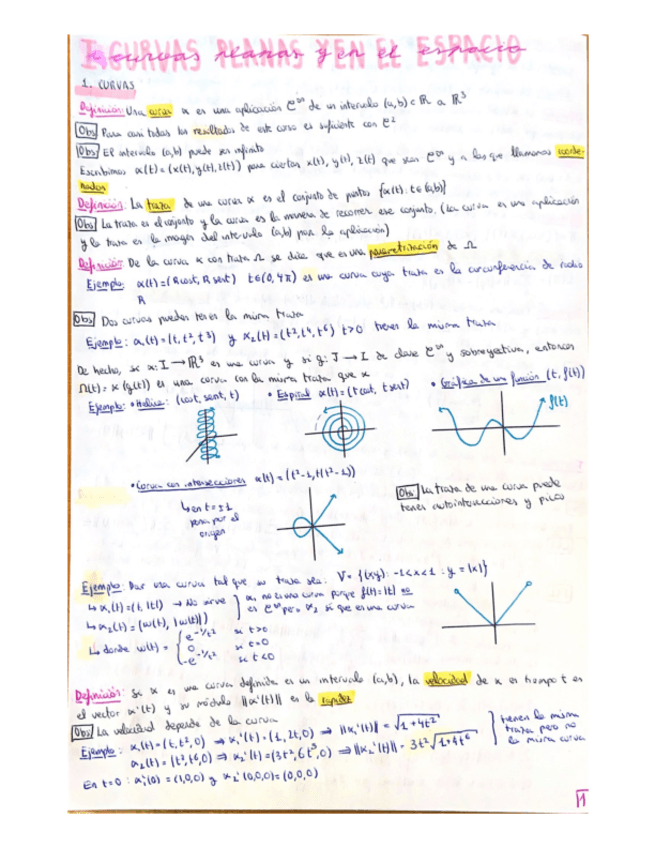 I. CURVAS PLANAS Y EN EL ESPACIO
1. CURVAS
Definición: Una curva α es una aplicación C^∞ de un intervalo (a,b) ⊂ ℝ a ℝ³
Obs Para casi todos los resultados de este curso es suficiente con C²
Obs El intervalo (a,b) puede ser infinito
Escribimos α(t) = (x(t), y(t), z(t)) para ciertas x(t), y(t), z(t) que sean C^∞ y a las que llamamos coorde-
nadas
Definición: La traza de una curva α es el conjunto de puntos {α(t): t∈(a,b)}
Obs La traza es el conjunto y la curva es la manera de recorrer ese conjunto. (La curva es una aplicación
y la traza es la imagen del intervalo (a,b) por la aplicación)
Definición: De la curva α con traza Ω se dice que es una parametrización de Ω
Ejemplo: α(t) = (R cost, R sent) t∈(0,4π) es una curva cuya traza es la circunferencia de radio
R
Obs Dos curvas pueden tener la misma traza
Ejemplo: α₁(t) = (t, t², t³) y α₂(t) = (t², t⁴, t⁶) t>0 tienen la misma traza
De hecho, si α: I → ℝ³ es una curva y si g: J → I de clase C^∞ y sobreyectiva, entonces
Ω(t) = α(g(t)) es una curva con la misma traza que α
Ejemplo: • Hélice: (cost, sent, t) • Espiral α(t) = (t cost, t sent) • Gráfica de una función (t, f(t))
f(t)
• Curva con intersecciones α(t) = (t²-1, t(t²-1))
↳ en t=±1
pasa por el
origen
Obs: La traza de una curva puede
tener autointersecciones y picos
Ejemplo: Dar una curva tal que su traza sea: V = {(x,y): -1<x<1 : y = |x|}
↳ α₁(t) = (t, |t|) → No sirve } α₁ no es una curva porque f(t)=|t| no
↳ α₂(t) = (w(t), |w(t)|) es C^∞ pero α₂ sí que es una curva
↳ donde w(t) = { e^{-1/t²} si t>0
0 si t=0
-e^{-1/t²} si t<0
Definición: Si α es una curva definida en un intervalo (a,b), la velocidad de α en tiempo t es
el vector α'(t) y su módulo ||α'(t)|| es la rapidez
Obs La velocidad depende de la curva
Ejemplo: α₁(t) = (t, t², 0) ⇒ α₁'(t) = (1, 2t, 0) ⇒ ||α₁'(t)|| = √1+4t² } tienen la misma
α₂(t) = (t³, t⁶, 0) ⇒ α₂'(t) = (3t², 6t⁵, 0) ⇒ ||α₂'(t)|| = 3t²√1+4t⁶ traza pero no
la misma curva
En t=0: α₁'(0) = (1,0,0) y α₂'(0,0,0) = (0,0,0)
1